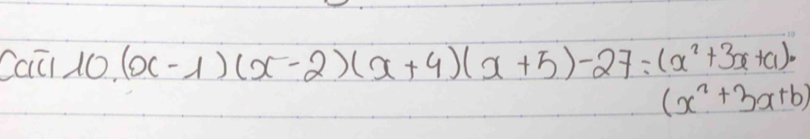 Câu 10. (x-1)(x-2)(x+4)(x+5)-27=(x²+3x+a).
(x²+3x+b)